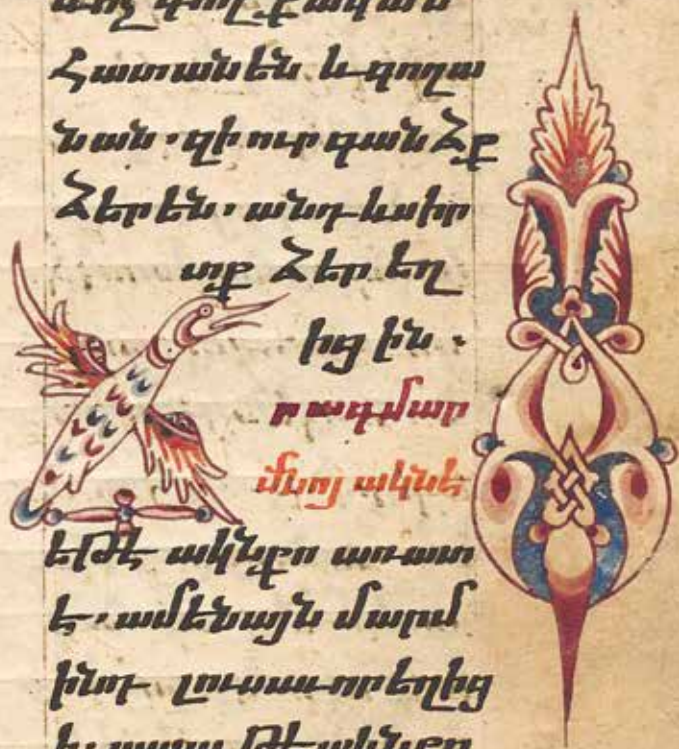 ւոչ գողք ական
հատանեն և գողա
նան · զի ուր գանձք
ձեր են · անդ և սիր
տք ձեր եղ
իցին ·
Ճրագ մար
մնոյ ակնէ
եթէ ակնքո առատ
է · ամենայն մարմ
ինդ լուսաւոր եղիցի
եւ ապա թէ ակնքո